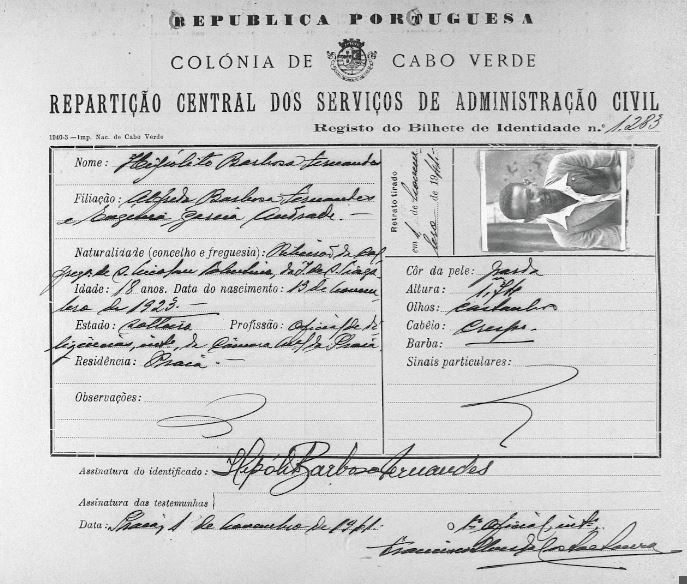 REPUBLICA PORTUGUESA
COLÓNIA DE CABO VERDE
REPARTIÇÃO CENTRAL DOS SERVIÇOS DE ADMINISTRAÇÃO CIVIL
1940-5—Imp. Nac. de Cabo Verde
Registo do Bilhete de Identidade n.º 1.283
Nome: Hipólito Barbosa Fernandes
Filiação: Alfredo Barbosa Fernandes
e Eugenia Garcia Andrade.
Naturalidade (concelho e freguesia):
Idade: 18 anos. Data do nascimento: 13 de novem-
bro de 1923
Estado: solteiro Profissão: Oficial de di-
ligências, intº, da Câmara
Residência: Praia
Observações:
Retrato tirado
em de de 1941
Côr da pele: parda
Altura: 1,74
Olhos: castanhos
Cabêlo: Crespo.
Barba:
Sinais particulares:
Assinatura do identificado: Hipólito Barbosa Fernandes
Assinatura das testemunhas
Data: Praia, 1 de novembro de 1941.
O 1º Oficial, intº,
Francisco